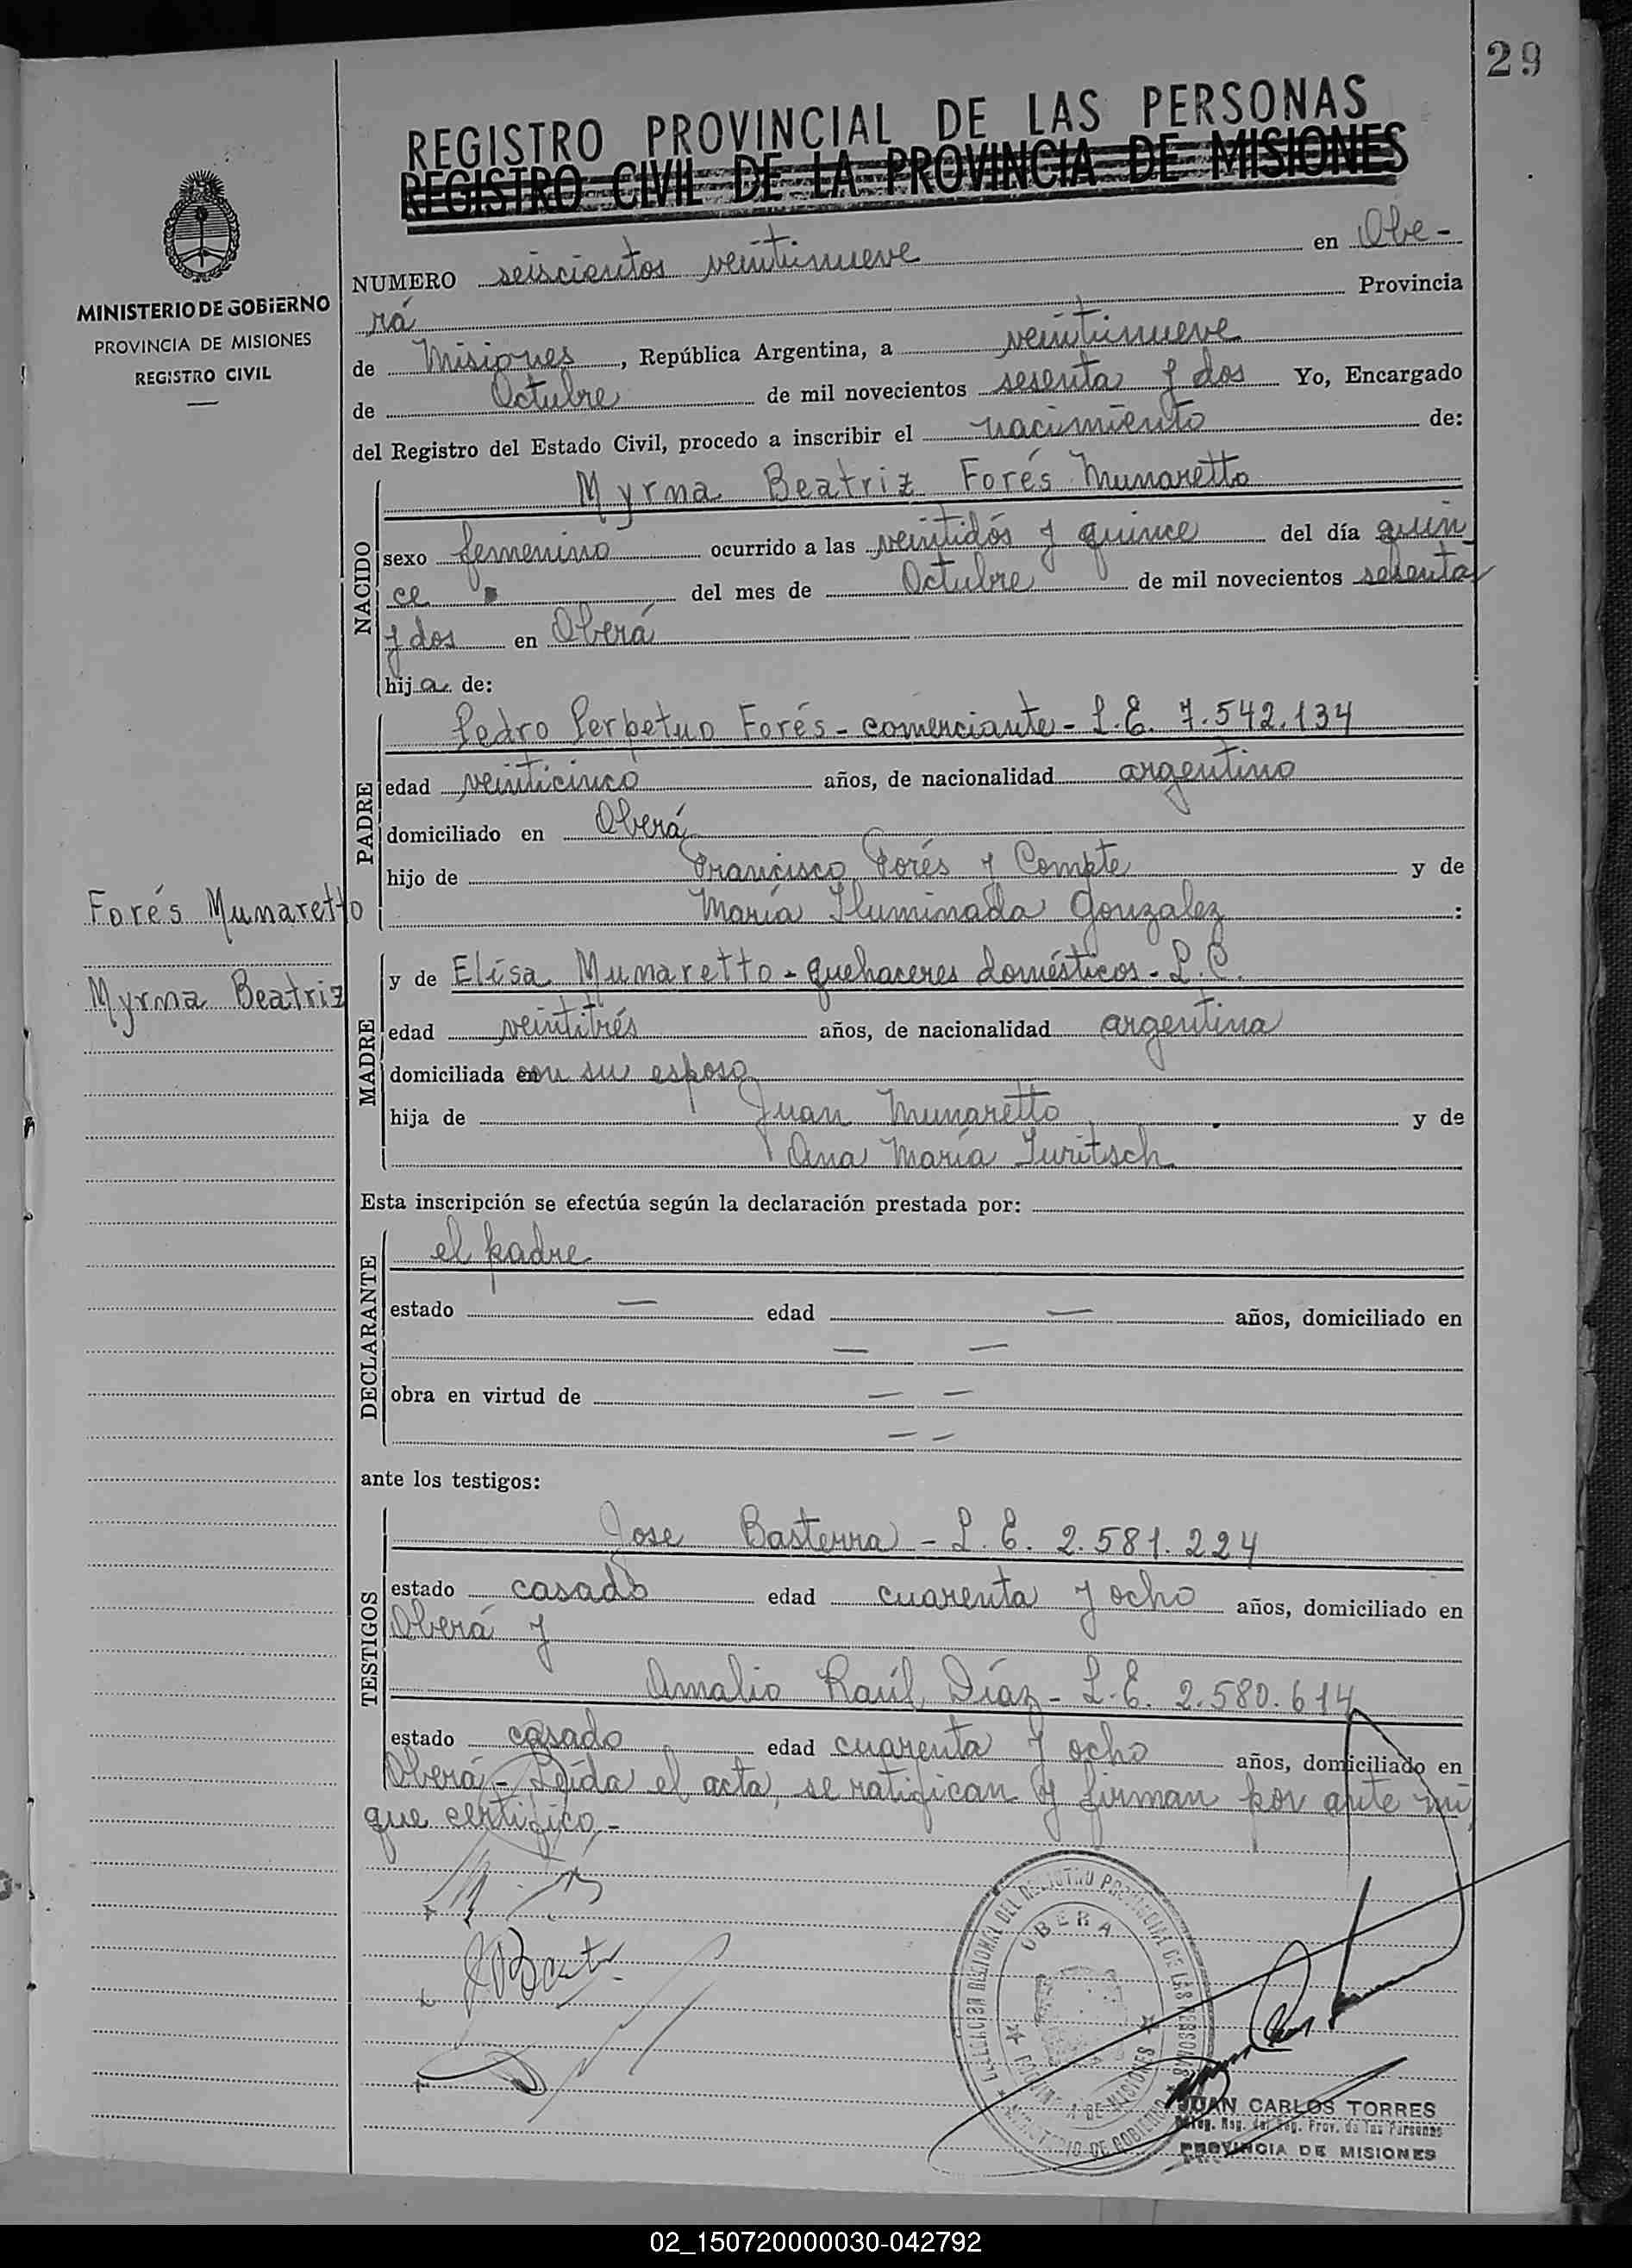 29
REGISTRO PROVINCIAL DE LAS PERSONAS
REGISTRO CIVIL DE LA PROVINCIA DE MISIONES
MINISTERIO DE GOBIERNO
PROVINCIA DE MISIONES
REGISTRO CIVIL
NUMERO seiscientos veintinueve en Obe-
rá Provincia
de Misiones, República Argentina, a veintinueve
de Octubre de mil novecientos sesenta y dos Yo, Encargado
del Registro del Estado Civil, procedo a inscribir el nacimiento de:
NACIDO
Myrna Beatriz Forés Munaretto
sexo femenino ocurrido a las veintidós y quince del día quin
ce del mes de Octubre de mil novecientos sesenta
y dos en Oberá
hija de:
PADRE
Pedro Perpetuo Forés - comerciante - L.E. 7.542.134
edad veinticinco años, de nacionalidad argentino
domiciliado en Oberá
hijo de Francisco Forés y Compte y de
María Iluminada Gonzalez :
Forés Munaretto
Myrna Beatriz
MADRE
y de Elisa Munaretto - quehaceres domésticos - L.C.
edad veintitrés años, de nacionalidad argentina
domiciliada en con su esposo
hija de Juan Munaretto y de
Ana María Juritsch
Esta inscripción se efectúa según la declaración prestada por:
DECLARANTE
el padre
estado — edad — años, domiciliado en
— —
obra en virtud de — —
— —
ante los testigos:
TESTIGOS
Jose Basterra - L. E. 2.581.224
estado casado edad cuarenta y ocho años, domiciliado en
Oberá y
Amalio Raúl Díaz - L.E. 2.580.614
estado casado edad cuarenta y ocho años, domiciliado en
Oberá - Leída el acta, se ratifican y firman por ante mí
que certifico.-
DELEGACION REGIONAL DEL REGISTRO PROVINCIAL DE LAS PERSONAS
OBERA
PROVINCIA DE MISIONES
MINISTERIO DE GOBIERNO
JUAN CARLOS TORRES
Deleg. Reg. del Reg. Prov. de las Personas
PROVINCIA DE MISIONES
02_150720000030-042792